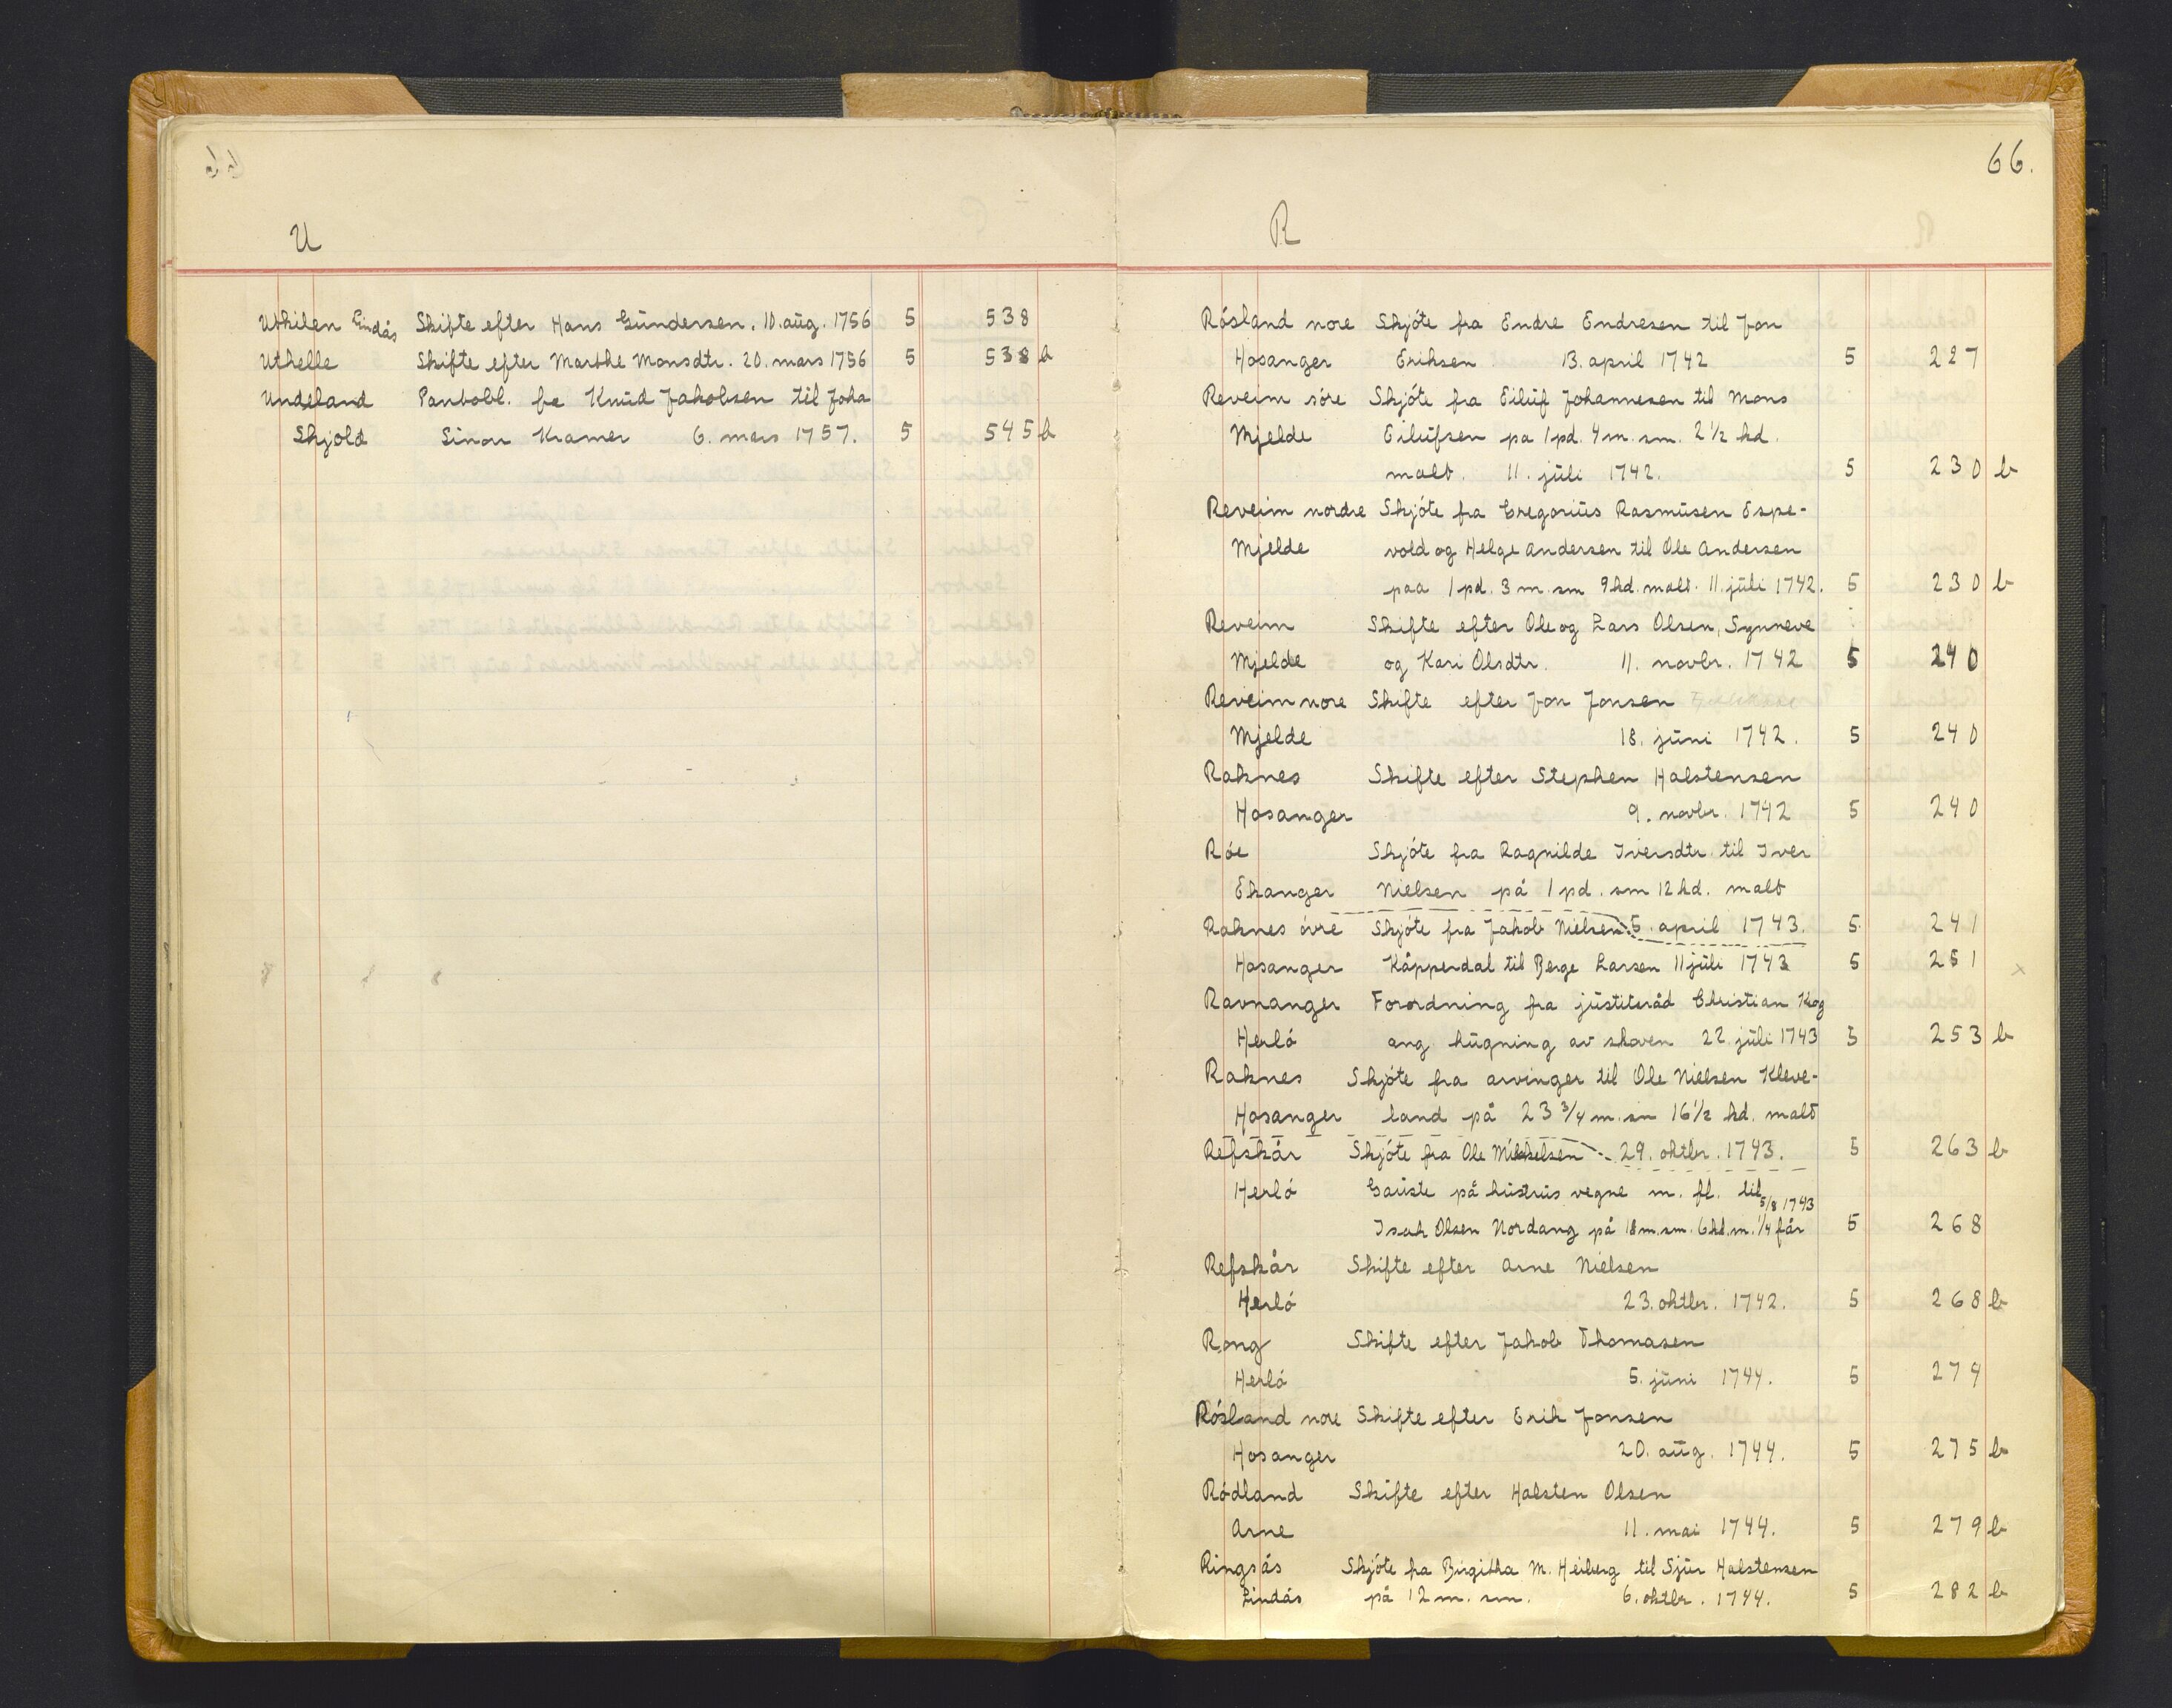 U
Uthilen Lindås Skifte efter Hans Gundersen. 10. aug. 1756 5 538
Uthelle Skifte efter Marthe Monsdtr. 20. mars 1756 5 538 b
Undeland Pantobl. fra Knud Jakobsen til Joha
Skjold Sinon Kramer 6. mars 1757. 5 545 b
66.
R
Rósland nore Skjóte fra Endre Endresen til Jon
Hosanger Eriksen 13. april 1742 5 227
Reveim sóre Skjóte fra Eiluf Johannesen til Mons
Mjelde Eilufsen pa 1 pd. 4 m. sm. 2 1/2 hd.
malt. 11. juli 1742. 5 230 b
Reveim nordre Skjóte fra Gregorius Rasmusen Espe-
Mjelde vold og Helge Andersen til Ole Andersen
paa 1 pd. 3 m. sm 9 hd. malt. 11. juli 1742. 5 230 b
Reveim Skifte efter Ole og Lars Olsen, Synneve
Mjelde og Kari Olsdtr. 11. novbr. 1742 5 240
Reveim nore Skifte efter Jon Jonsen
Mjelde 18. juni 1742. 5 240
Raknes Skifte efter Stephen Halstensen
Hosanger 9. novbr. 1742 5 240
Róe Skjóte fra Ragnilde Iversdtr. til Iver
Ekanger Nielsen på 1 pd. sm 12 hd. malt
Raknes óvre Skjóte fra Jakob Nielsen 5. april 1743. 5 241
Hosanger Kåpperdal til Berge Larsen 11 juli 1743 5 251 x
Ravnanger Forordning fra justiteråd Christian Krog
Herló ang. hugning av skoven 22. juli 1743 5 253 b
Raknes Skjóte fra arvinger til Ole Nielsen Kleve-
Hosanger land på 23 3/4 m. sm 16 1/2 hd. malt
Refskår Skjóte fra Ole Mikkelsen 29. oktbr. 1743. 5 263 b
Herló Gauste på hustrus vegne m. fl. til 5/8 1743
Isak Olsen Nordang på 18 m. sm. 6 hd. m. 1/4 får 5 268
Refskår Skifte efter Arne Nielsen
Herló 23. oktbr. 1742. 5 268 b
Rong Skifte efter Jakob Thomasen
Herló 5. juni 1744. 5 274
Rósland nore Skifte efter Erik Jonsen
Hosanger 20. aug. 1744. 5 275 b
Ródland Skifte efter Halsten Olsen
Arne 11. mai 1744. 5 279 b
Ringsås Skjóte fra Birgitha M. Heiberg til Sjur Halstensen
Lindås på 12 m. sm. 6. oktbr. 1744. 5 282 b